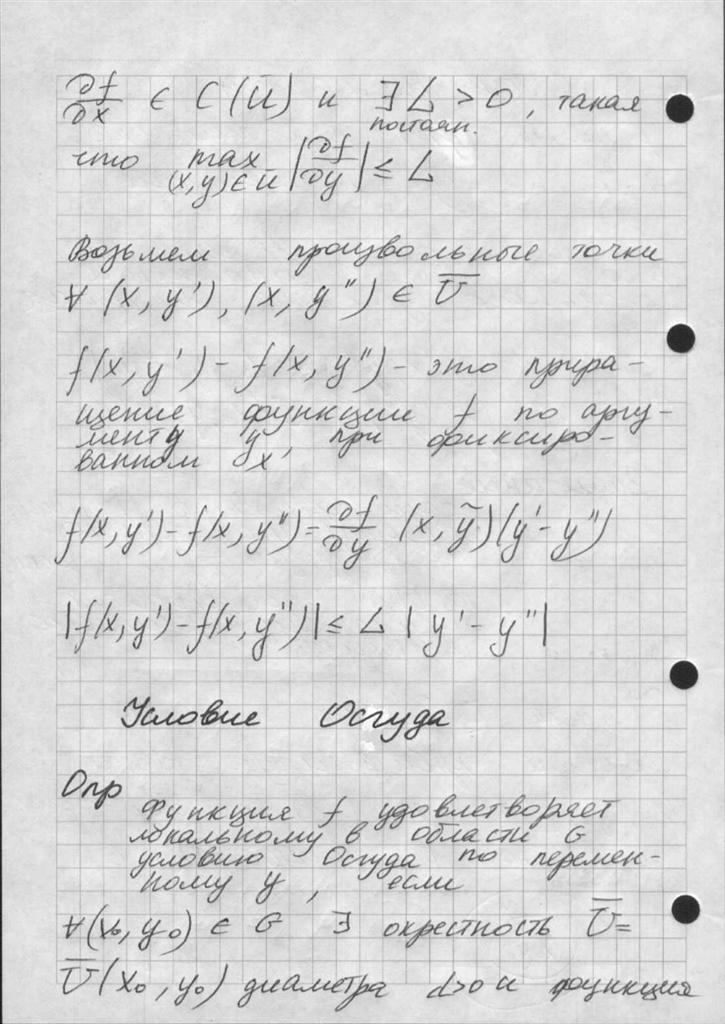 ∂f/∂x ∈ C(Ū) и ∃ L > 0, такая
постоян.
что max |∂f/∂y| ≤ L
(x,y)∈Ū
Возьмем произвольные точки
∀ (x, y'), (x, y'') ∈ Ū
f(x, y') - f(x, y'') - это прира-
щение функции f по аргу-
менту y, при фиксиро-
ванном x
f(x, y') - f(x, y'') = ∂f/∂y (x, ỹ)(y' - y'')
|f(x, y') - f(x, y'')| ≤ L |y' - y''|
Условие Осгуда
Опр
Функция f удовлетворяет
локальному в области G
условию Осгуда по перемен-
ному y, если
∀(x₀, y₀) ∈ G ∃ окрестность Ū =
Ū(x₀, y₀) диаметра d>0 и функция